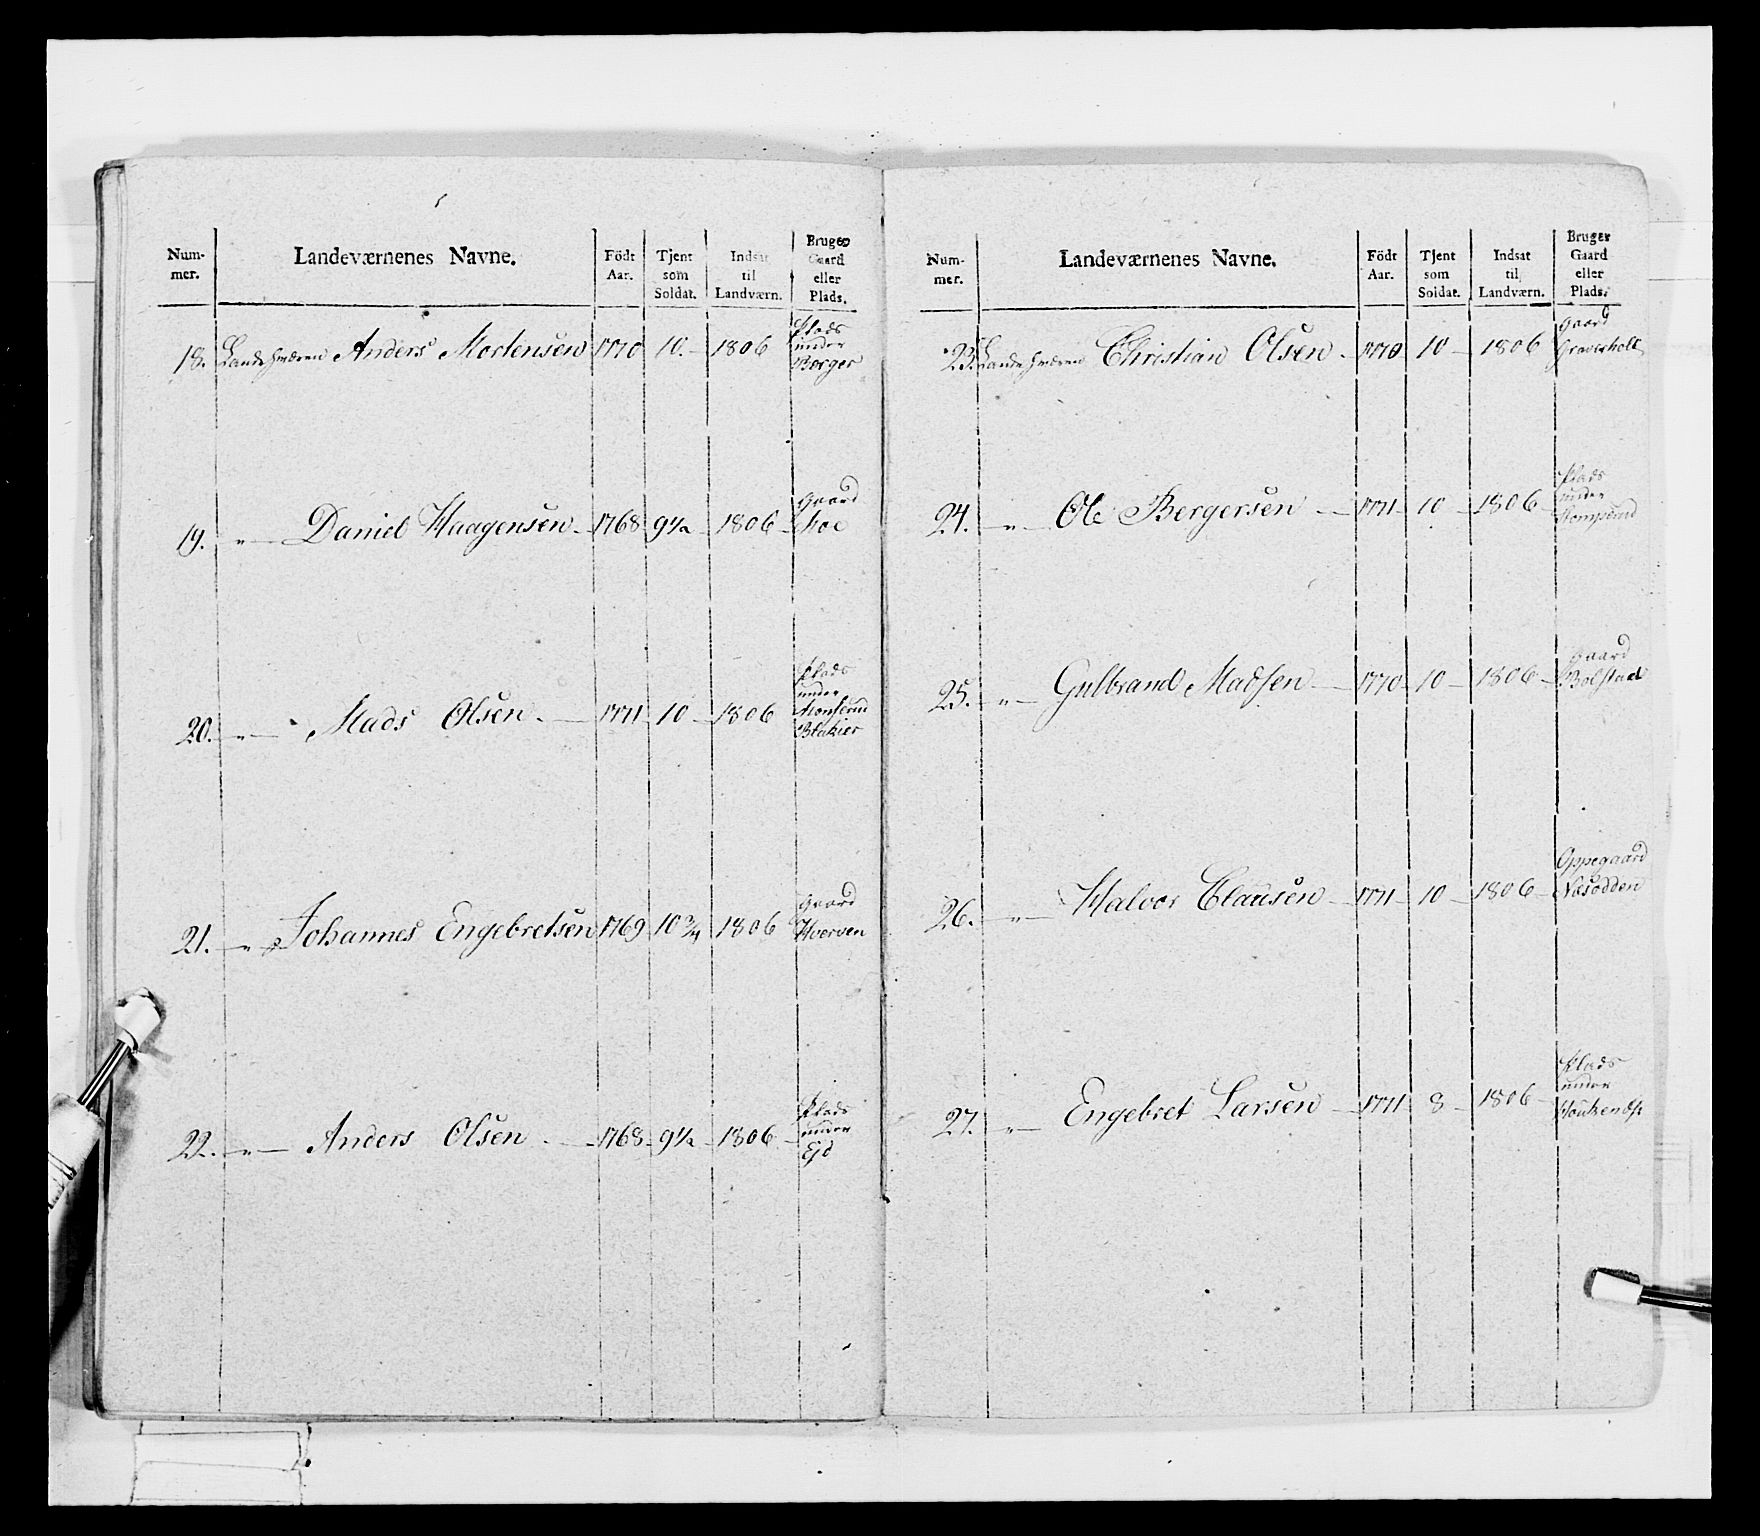 Num-
mer.
Landeværnenes Navne.
Födt
Aar.
Tjent
som
Soldat.
Indsat
til
Landværn.
Bruger
Gaard
eller
Plads.
18. Anders Mortensen 1770 10. – 1806
Plads
under
Berger
19. – " – Daniel Haagensen – 1768 9½ – 1806 –
Gaard
20. – " – Mads Olsen. – 1771 10 – 1806
Plads
under
21. – " – Johannes Engebretsen 1769 10¾ 1806
Gaard
Hverven
22. – " – Anders Olsen – 1768 9½ – 1806 –
Plads
under
Eid
Num-
mer.
Landeværnenes Navne.
Födt
Aar.
Tjent
som
Soldat.
Indsat
til
Landværn.
Bruger
Gaard
eller
Plads.
23. Christian Olsen – 1770 10 – 1806
Gaard
Graverholt
24. – " – Ole Bergersen – 1771 10 – 1806 –
Plads
under
25. – " – Gulbrand Madsen – 1770 10 – 1806 –
Gaard
Bolstad
26. – " – Halvor Clausen – 1771 10 – 1806 –
Oppegaard
Næsodden
27. – " – Engebret Larsen – 1771 8 – 1806
Plads
under